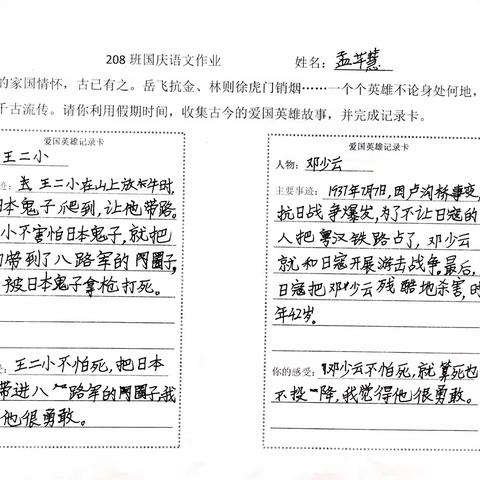 208 班国庆语文作业 姓名：孟芊慧
的家国情怀，古已有之。岳飞抗金、林则徐虎门销烟……一个个英雄不论身处何地，
千古流传。请你利用假期时间，收集古今的爱国英雄故事，并完成记录卡。
爱国英雄记录卡
王二小
迹：当 王二小在山上放牛时，
日本鬼子爬到，让他带路。
小不害怕日本鬼子，就把
带到了八路军的圈子，
被日本鬼子拿枪打死。
受：王二小不怕死，把日本
带进八路军的圈子，我
他很勇敢。
爱国英雄记录卡
人物：邓少云
主要事迹：1937年7月7日，因卢沟桥事变，
抗日战争爆发，为了不让日寇的
人把粤汉铁路占了，邓少云
就和日寇开展游击战争。最后，
日寇把邓少云残酷地杀害，时
年42岁。
你的感受：邓少云不怕死，就算死也
不投降，我觉得他很勇敢。